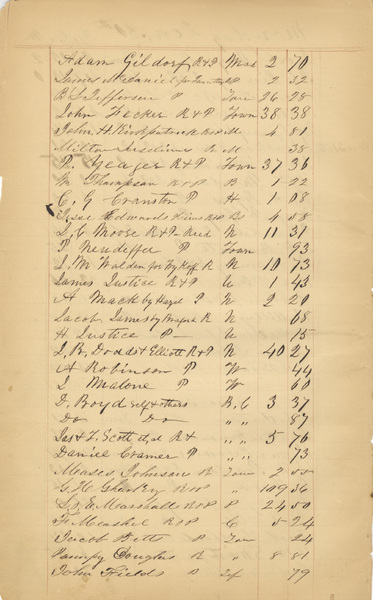 Adam Gildorf R&P Wood 2 70
James McDaniel for P 2 32
Jefferson P Town 26 28
John Fecker R&P Town 38 38
John H Kirkpatrick R&P M 4 81
Milton R M 38
P. Yeager R&P Town 37 36
M Thompson R&P B 1 22
C. G Cranston P H 1 08
Jesse Edwards R&P 4 58
L. C Moose R&P N 11 31
P Nendeffer P Town 93
I. M Walden for R N 10 73
James Justice R&P U 1 43
A Mack by Hazel P N 2 20
Jacob James by R N 68
H Justice P — U 15
J. B. Dodds & Elliott R&P N 40 27
A Robinson P W 44
S Malone P W 60
D. Boyd self & others B. C 3 37
Do Do " " 87
Jas & F. Scott et al R& " " 5 76
Daniel Cramer P " " 73
Moses Johnson R Town 2 00
G. H. R&P " 109 36
E. Marshall R&P P 24 50
R&P C 5 24
Jacob Betts P Tow 24
Pampy Douglas R " 8 81
John Fields P 79